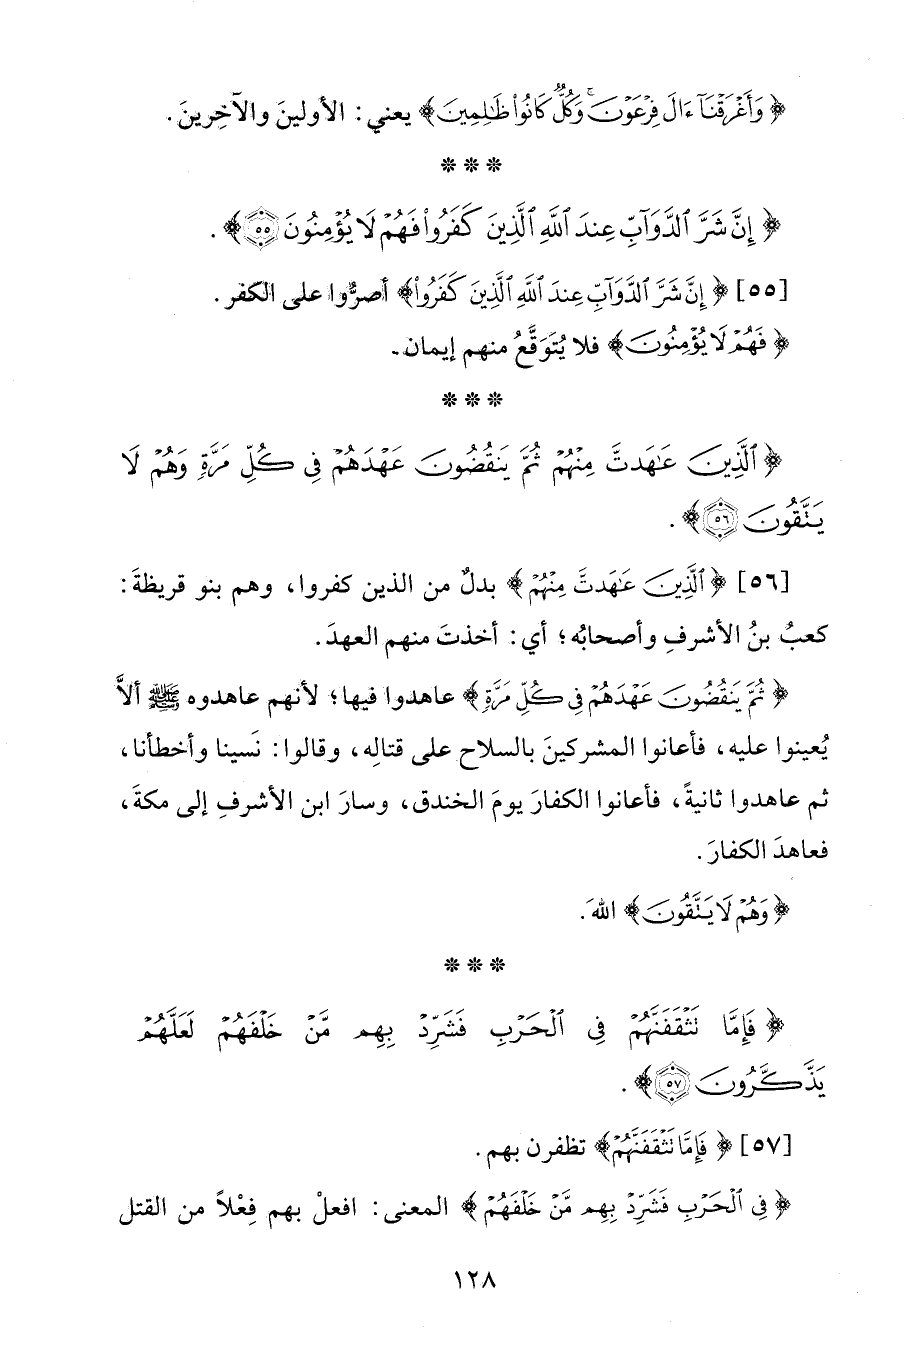 ﴿وَأَغْرَقْنَآ ءَالَ فِرْعَوْنَ ۚ وَكُلٌّ كَانُوا۟ ظَٰلِمِينَ﴾ يعني: الأولينَ والآخِرينَ.
***
﴿إِنَّ شَرَّ ٱلدَّوَآبِّ عِندَ ٱللَّهِ ٱلَّذِينَ كَفَرُوا۟ فَهُمْ لَا يُؤْمِنُونَ ٥٥﴾.
[٥٥] ﴿إِنَّ شَرَّ ٱلدَّوَآبِّ عِندَ ٱللَّهِ ٱلَّذِينَ كَفَرُوا۟﴾ أصرُّوا على الكفر.
﴿فَهُمْ لَا يُؤْمِنُونَ﴾ فلا يُتَوَقَّعُ منهم إيمان.
***
﴿ٱلَّذِينَ عَٰهَدتَّ مِنْهُمْ ثُمَّ يَنقُضُونَ عَهْدَهُمْ فِى كُلِّ مَرَّةٍ وَهُمْ لَا
يَتَّقُونَ ٥٦﴾.
[٥٦] ﴿ٱلَّذِينَ عَٰهَدتَّ مِنْهُمْ﴾ بدلٌ من الذين كفروا، وهم بنو قريظةَ:
كعبُ بنُ الأشرفِ وأصحابُه؛ أي: أخذتَ منهم العهدَ.
﴿ثُمَّ يَنقُضُونَ عَهْدَهُمْ فِى كُلِّ مَرَّةٍ﴾ عاهدوا فيها؛ لأنهم عاهدوه ﷺ ألاَّ
يُعينوا عليه، فأعانوا المشركينَ بالسلاح على قتالِه، وقالوا: نَسينا وأخطأنا،
ثم عاهدوا ثانيةً، فأعانوا الكفارَ يومَ الخندق، وسارَ ابن الأشرفِ إلى مكةَ،
فعاهدَ الكفارَ.
﴿وَهُمْ لَا يَتَّقُونَ﴾ اللهَ.
***
﴿فَإِمَّا تَثْقَفَنَّهُمْ فِى ٱلْحَرْبِ فَشَرِّدْ بِهِم مَّنْ خَلْفَهُمْ لَعَلَّهُمْ
يَذَّكَّرُونَ ٥٧﴾.
[٥٧] ﴿فَإِمَّا تَثْقَفَنَّهُمْ﴾ تظفرن بهم.
﴿فِى ٱلْحَرْبِ فَشَرِّدْ بِهِم مَّنْ خَلْفَهُمْ﴾ المعنى: افعلْ بهم فِعْلاً من القتل
١٢٨